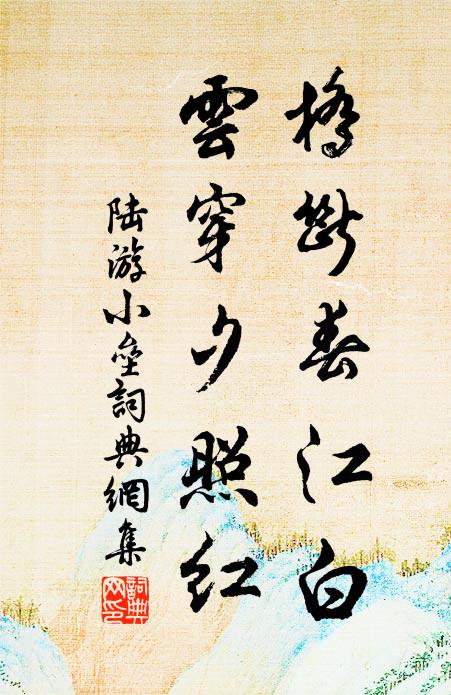 橋斷春江白
雲穿夕照紅
陸游小壘詞典網集
詞典
网印